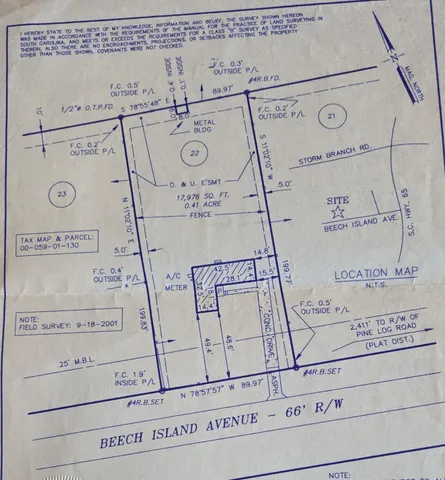 I HEREBY STATE TO THE BEST OF MY KNOWLEDGE, INFORMATION AND BELIEF, THE SURVEY SHOWN HEREON
WAS MADE IN ACCORDANCE WITH THE REQUIREMENTS OF THE MANUAL FOR THE PRACTICE OF LAND SURVEYING IN
SOUTH CAROLINA, AND MEETS OR EXCEEDS THE REQUIREMENTS FOR A CLASS "B" SURVEY AS SPECIFIED
THEREIN; ALSO THERE ARE NO ENCROACHMENTS, PROJECTIONS, OR SETBACKS AFFECTING THE PROPERTY
OTHER THAN THOSE SHOWN. COVENANTS WERE NOT CHECKED.
N
MAG. NORTH
F.C. 0.5'
OUTSIDE P/L
0.4' INSIDE
0.1' INSIDE
F.C. 0.3'
OUTSIDE P/L
#4R.B.FD.
10'
1/2" O.T.P.FD.
S 78°55'48" E
8.0'
89.97'
F.C. 0.2'
OUTSIDE P/L
METAL
BLDG
F.C. 0.2'
OUTSIDE P/L
21
22
23
STORM BRANCH RD.
S 11°02'10" W
N 11°02'10" E
D. & U. E'SMT
17,976 SQ. FT.
0.41 ACRE
FENCE
5.0'
SITE
BEECH ISLAND AVE.
S.C. HWY. 65
TAX MAP & PARCEL:
00-059-01-130
5.0'
14.8'
F.C. 0.4'
OUTSIDE P/L
A/C
METER
42.5'
28.1'
15.5'
199.77'
LOCATION MAP
N.T.S.
14.4'
P
NOTE:
FIELD SURVEY: 9-18-2001
199.83'
49.4'
48.6'
CONC. DRIVE
F.C. 0.5'
OUTSIDE P/L
2,411' TO R/W OF
PINE LOG ROAD
(PLAT DIST.)
25' M.B.L.
F.C. 1.9'
INSIDE P/L
ASPH.
#4R.B.SET
N 78°57'57" W 89.97'
#4R.B.SET
BEECH ISLAND AVENUE - 66' R/W
NOTE: